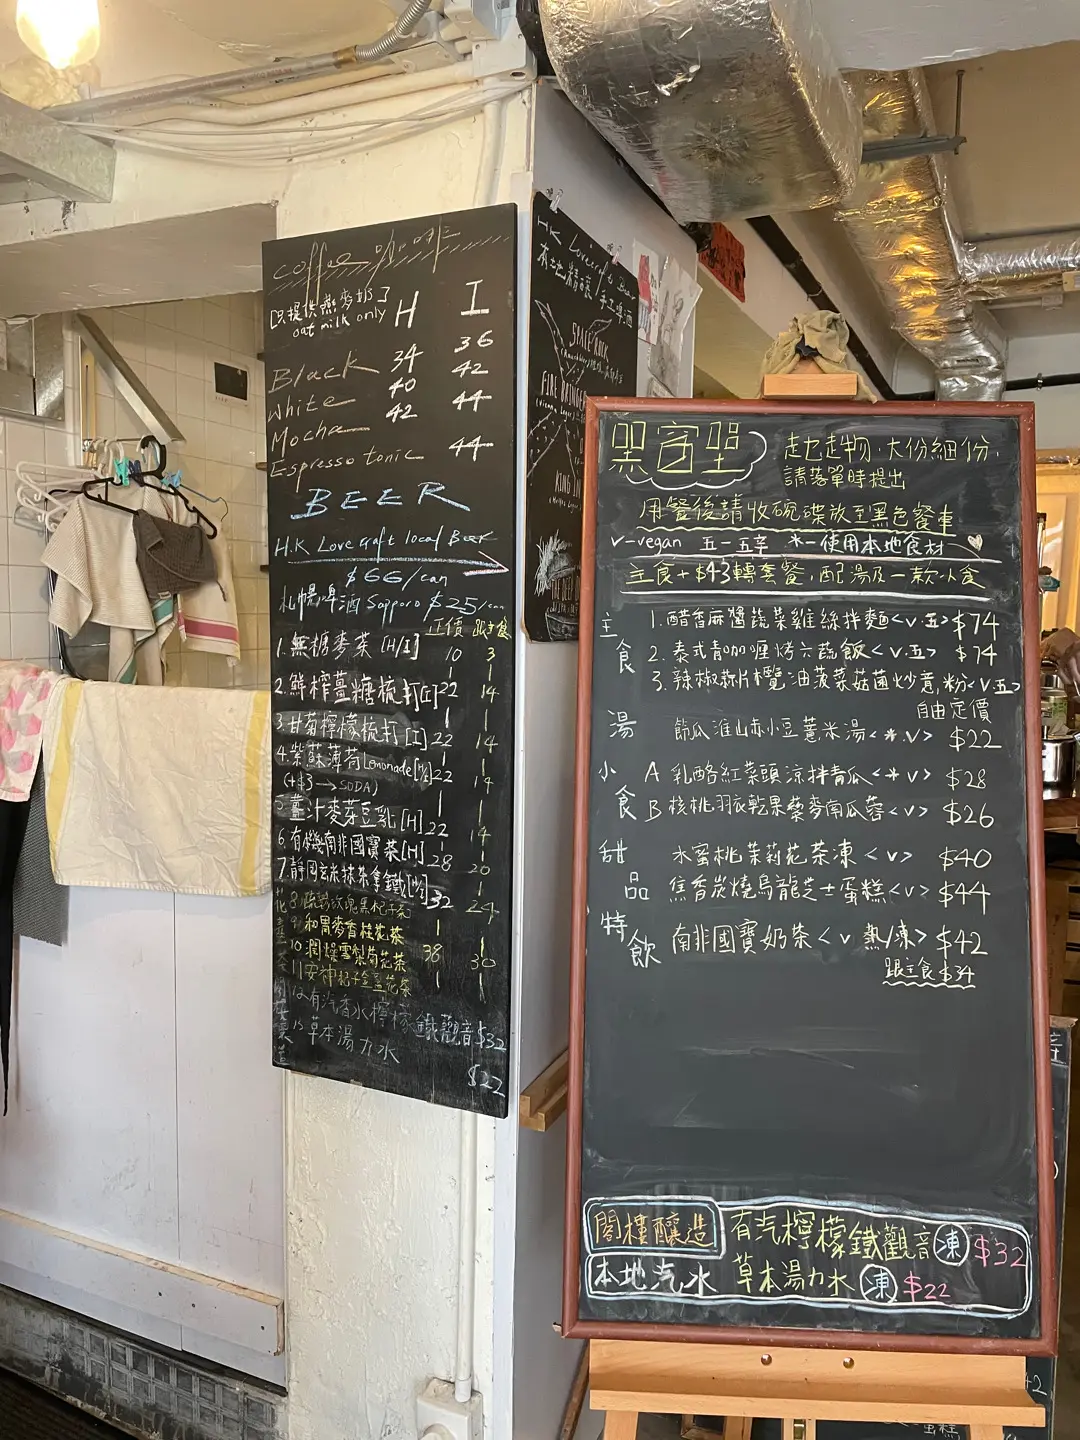 coffee 咖啡
只提供燕麥奶
oat milk only
H I
Black 34 36
White 40 42
Mocha 42 44
Espresso tonic 44
BEER
H.K Lovecraft local Beer
$66/can
札幌啤酒 Sapporo $25/can
正價 跟主食
1. 無糖麥茶 [H/I] 10 3
2. 鮮榨薑糖梳打 [I] 22 14
3. 甘菊檸檬梳打 [I] 22 14
4. 紫蘇薄荷 Lemonade 22 14
(+$3 → SODA)
5. 薑汁麥芽豆乳 [H] 22 14
6. 有機南非國寶茶 [H] 28 20
7. 靜岡玄米抹茶拿鐵 [H/I] 32 24
9. 和胃麥香桂花茶
10. 潤燥雪梨菊花茶 38 30
11. 安神杞子金盞花茶
12. 有汽香水檸檬鐵觀音 $32
草本湯力水
$22
HK Lovecraft Beer
本土精釀/手工啤酒
SPACE ROCK
FIRE BRINGER
黑窗里
走乜走物,大份細份,
請落單時提出
用餐後請收碗碟放至黑色餐車
✓-vegan 五-五辛 *-使用本地食材 ♡
主食+$43轉套餐,配湯及一款小食
主食
1. 醋香麻醬蔬菜雞絲拌麵<v.五> $74
2. 泰式青咖喱烤六蔬飯<v.五> $74
3. 辣椒蒜片欖油菠菜菇菌炒意粉<v.五>
自由定價
湯 節瓜淮山赤小豆薏米湯<*.v> $22
小食
A 乳酪紅菜頭涼拌青瓜<*v> $28
B 核桃羽衣乾果藜麥南瓜蓉<v> $26
甜品
水蜜桃茉莉花茶凍<v> $40
焦香炭燒烏龍芝士蛋糕<v> $44
特飲
南非國寶奶茶<v 熱/凍> $42
跟主食$34
閣樓釀造 有汽檸檬鐵觀音 凍 $32
本地汽水 草本湯力水 凍 $22